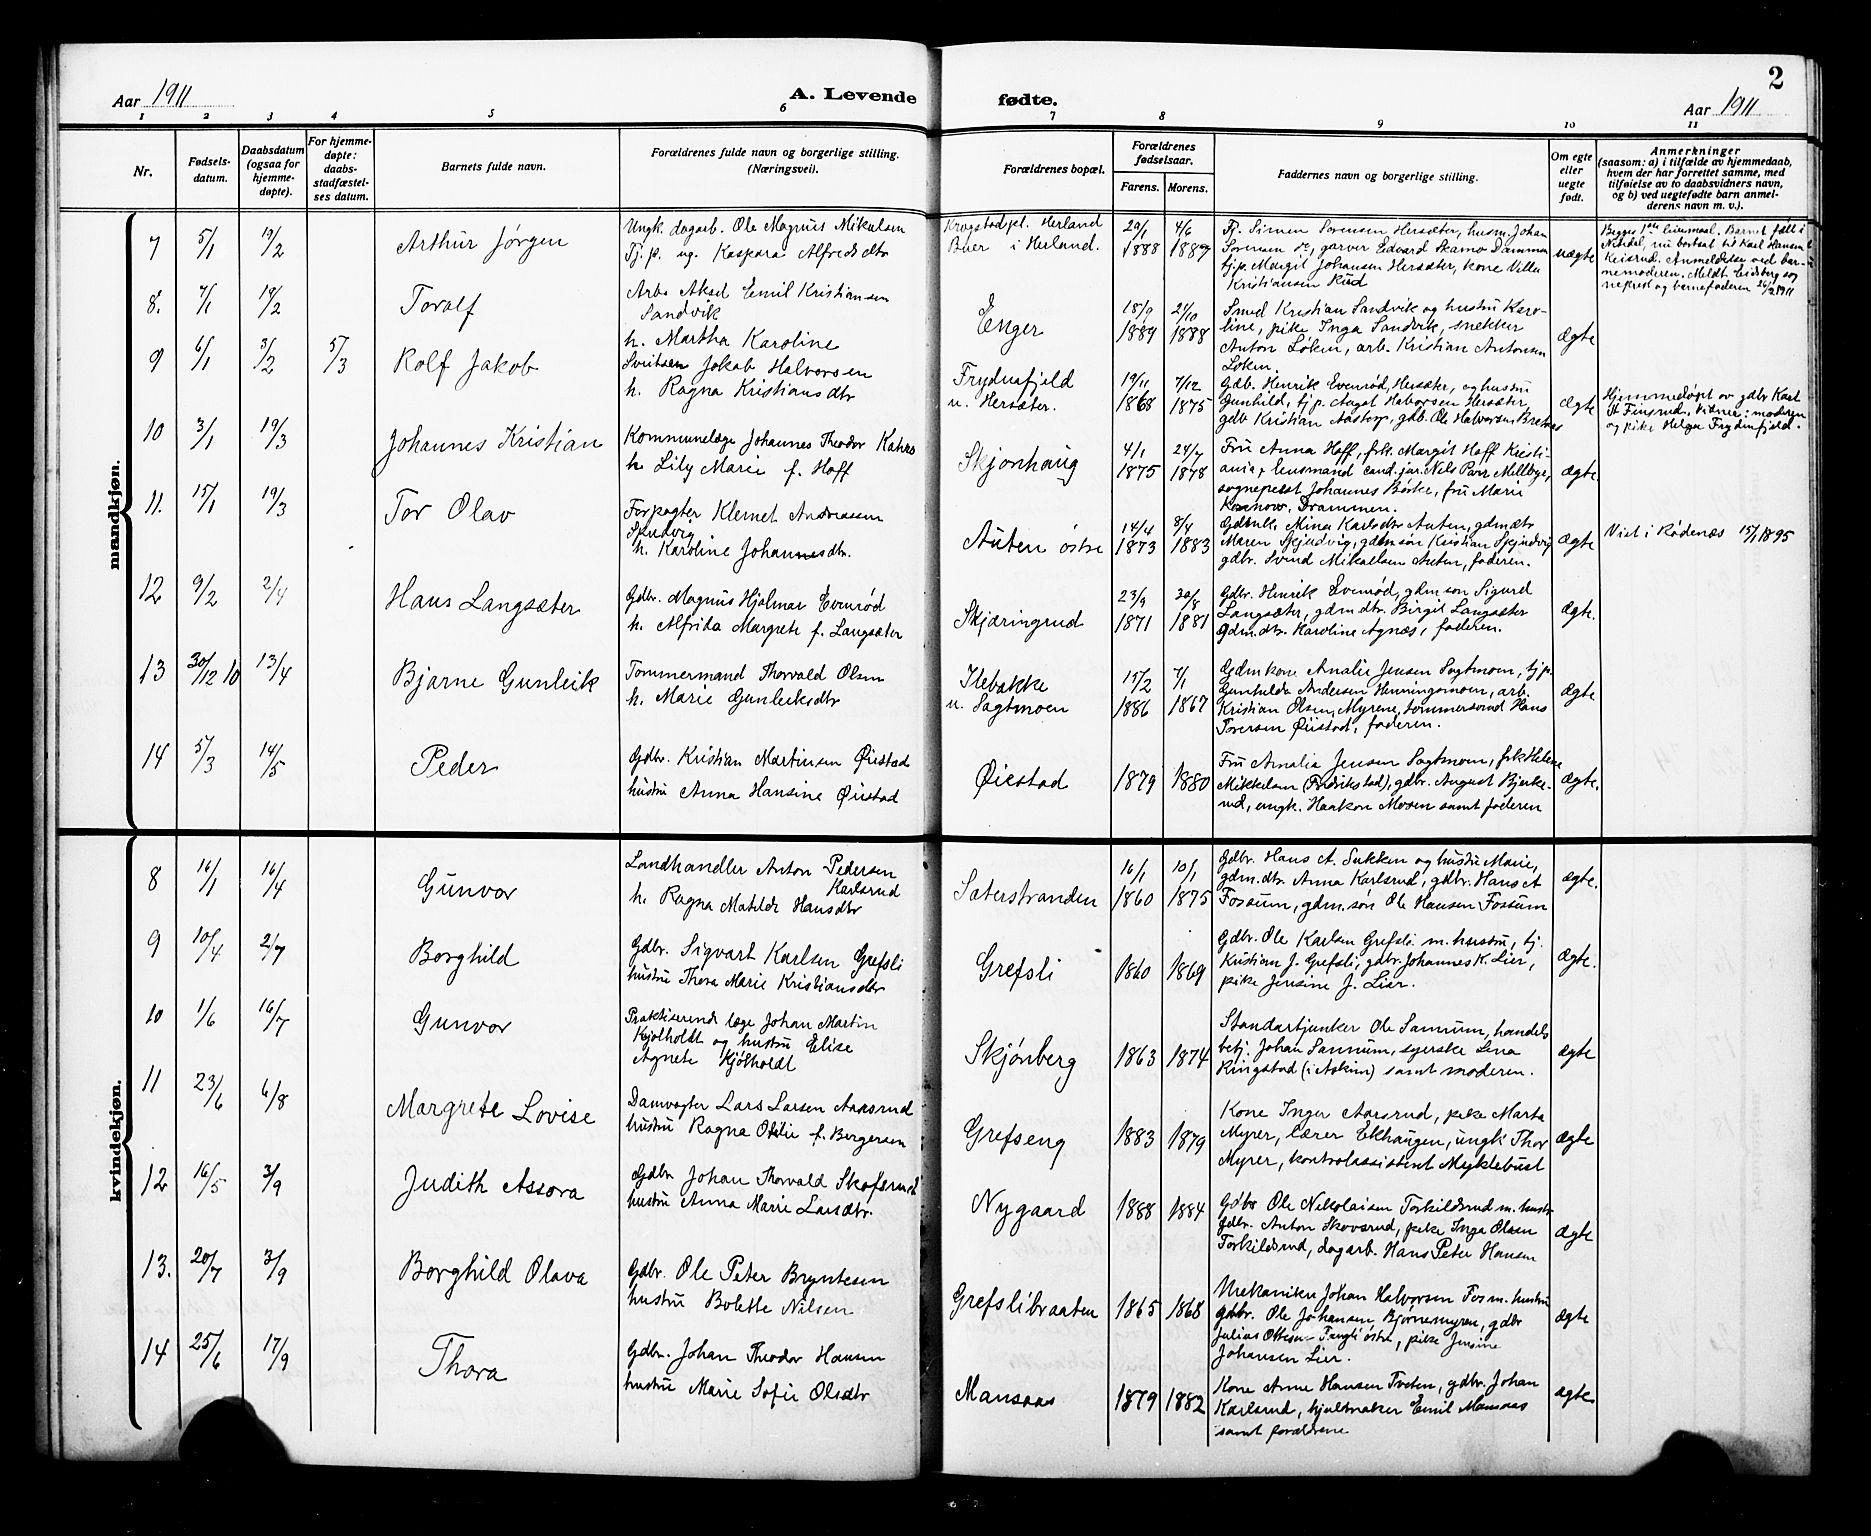 Aar 1911
A. Levende
fødte.
2
Aar 1911
1 2 3 4 5 6 7 8 9 10 11
Nr.
Fødsels-
datum.
Daabsdatum
(ogsaa for
hjemme-
døpte).
For hjemme-
døpte:
daabs-
stadfæstel-
ses datum.
Barnets fulde navn.
Forældrenes fulde navn og borgerlige stilling.
(Næringsvei).
Forældrenes bopæl.
Forældrenes
fødselsaar.
Farens. Morens.
Faddernes navn og borgerlige stilling.
Om egte
eller
uegte
født.
Anmerkninger
(saasom: a) i tilfælde av hjemmedaab,
hvem der har forrettet samme, med
tilføielse av to daabsvidners navn,
og b) ved uegtefødte barn anmel-
derens navn m. v.).
mandkjøn.
7 5/1 19/2 Arthur Jørgen
Ungk. dagarb. Ole Magnus Mikalsen
Tj. p. ug. Kaspara Alfredsdtr
Krogstadpl. Herland
Buer i Herland.
20/1 1888 4/6 1889
Tj. Simen Sørensen Hersæter, husm. Johan
Sørensen garver Edvard
tj.p. Margit Johansen Hersæter, kone Villa
Kristiansen Rud
uægte
Begges 1ste leiermaal. Barnet født i
nu bortsat til Karl Hansen
Anmeldelse ved bar-
nemoderen. Meldt Eidsberg sog
neprest og barnefaderen 26/2 1911
8. 7/1 19/2 Toralf
Arb. Aksel Emil Kristiansen
Sandvik
h. Martha Karoline
Enger
18/9 1889 21/10 1888
Smed Kristian Sandvik og hustru Karo-
line, pike Inga Sandvik, snekker
Anton Løken, arb. Kristian Antonsen
Løken.
ægte
9 6/1 3/2 5/3 Rolf Jakob
Jakob Halvorsen
h. Ragna Kristiansdtr
Frydenfjeld
u. Hersæter.
19/11 1868 7/12 1875
Gdb. Henrik Evenrød, Hersæter, og hustru
Gunhild, tj p. Aagot Halvorsen Hersæter
gdb Kristian Aastorp, gdb. Ole Halvorsen
ægte
Hjemmedøpt av gdbr Karl
A Finsrud. Vidner: moderen
og pike Helga Frydenfjeld.
10 3/1 19/3 Johannes Kristian
Kommunelæge Johannes Theodor Kahrs
h. Lily Marie f. Hoff
Skjønhaug
4/1 1875 24/7 1878
Fru Anna Hoff, frk. Margit Hoff Kristi-
ania, lensmand cand. jur. Nils Parr Mellbye,
sogneprest Johannes Børke, fru Marie
Drammen.
ægte.
11. 15/1 19/3 Tor Olav
Forpagter Klemet Andreassen
h. Karoline Johannesdtr.
Auten østre
14/4 1873 8/4 1883
Mina Karlsdtr Auten, gdmdtr
Maren Skjudvig, gdm søn Kristian Skjudvig
gdbr. Svend Mikalsen Auten, faderen.
ægte
Viet i Rødenæs 15/1 1895
12 9/2 2/4 Hans Langsæter
Gdbr. Magnus Hjalmar Evenrød
h. Alfrida Margrete f. Langsæter
Skjæringrud
23/9 1871 30/8 1881
Gdbr. Henrik Evenrød, gdm søn Sigurd
Langsæter, gdm dtr. Birgit Langsæter
Gdm.dtr. Karoline Agnæs, faderen.
ægte.
13 30/12 10 13/4 Bjarne Gunleik
Tømmermand Thorvald Olsen
h. Marie Gunleiksdtr
Ilebakke
u. Sagtmoen
15/2 1886 7/1 1867
Gdmkone Amalie Jensen Sagtmoen, tj p.
Gunhilda Andersen Henningsmoen, arb.
Kristian Olsen, Myrene, tømmersvend Hans
Torersen Øiestad, faderen.
ægte
14 5/3 14/5 Peder
Gdbr. Kristian Martinsen Øiestad
hustru Anna Hansine Øiestad
Øiestad
1879 1880
Fru Amalia Jensen Sagtmoen, frk Helene
Mikkelsen (Fredrikstad), gdbr. August Bjerke-
rud, ungk. Haakon Mosen samt faderen
ægte.
kvindekjøn.
8 16/1 16/4 Gunvor
Landhandler Anton Pedersen
Karlsrud
h. Ragna Matilde Hansdtr
Sæterstranden
16/1 1860 10/1 1875
Gdbr. Hans A. Sukken og hustru Marie,
gdm.dtr. Anna Karlsrud, gdbr. Hans A
Fossum, gdm.søn Ole Hansen Fossum
ægte.
9 10/4 2/7 Borghild
Gdbr. Sigvart Karlsen Grefsli
hustru Thora Marie Kristiansdtr
Grefsli
1860 1869
Gdbr. Ole Karlsen Grefsli m. hustru, tj.
Kristian J. Grefsli, gdbr. Johannes K. Lier,
pike Jensine J. Lier.
Ægte.
10 1/6 16/7 Gunvor
Praktiserende læge Johan Martin
Kjølholdt og hustru Elise
Agnete Kjølholdt
Skjønberg
1863 1874
Standartjunker Ole Sannum, handels
betj. Johan Sannum, syerske Lina
Ringstad (i Askim) samt moderen.
ægte
11 23/6 6/8 Margrete Lovise
Damvogter Lars Larsen Aaasrud
hustru Ragna Otilie f. Borgersen
Grefseng
1883 1879
Kone Inger Aarsrud, pike Marta
Myrer, lærer Ekhaugen, ungk Thor
Myrer, kontrolassistent Myklebust
ægte
12 16/5 3/9 Judith Assora
Gdbr Johan Thorvald
hustru Anna Marie Larsdtr.
Nygaard
1888 1884
Gdbr Ole Nikolaisen Torkildsrud m. hustr
gdbr. Anton Skovsrud, pike Inga Olsen
Torkildsrud, dagarb. Hans Peter Hansen
Ægte
13. 20/7 3/9 Borghild Olava
Gdbr. Ole Peter Bryntesen
hustru Bolette Nilsen
Grefslibraaten
1865 1868
Mekaniker Johan Halvorsen Fos m. hustru
gdbr. Ole Johansen Bjørnemyren, gdbr
Julius Ottesen østre, pike Jensine
Johansen Lier.
ægte
14 25/6 17/9 Thora
Gdbr. Johan Theodor Hansen
hustru Marie Sofie Olsdtr
Mansaas
1879 1882
Kone Anne Hansen Tveten, gdbr. Johan
Karlsrud, hjulmaker Emil Mansaas
samt forældrene
ægte